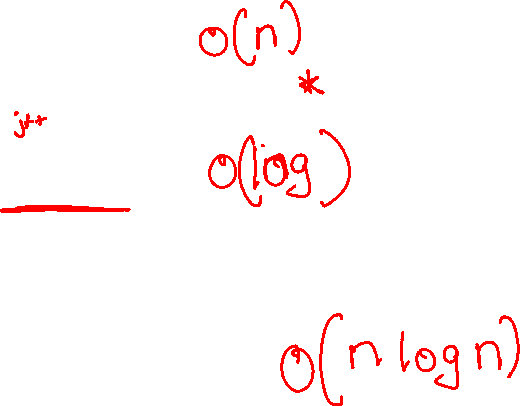 O(n)
*
j++
O(log)
O(n logn)